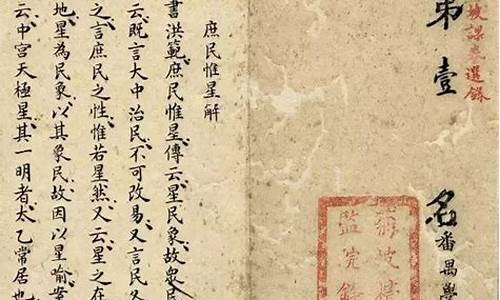 坡課卷選錄
第壹名番禺學
菊坡精
監院錄
庶民惟星解
書洪範庶民惟星傳云星民象故衆民
云既言大中治民不可改易又言民又
之言庶民之性惟若星然又云星之在
地星為民象以其象民故因以星喻案
云中宮天極星其一明者太乙常居也